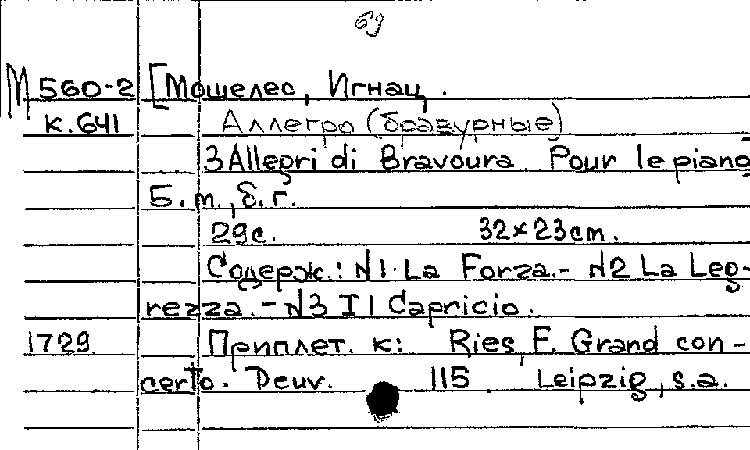 69
М 560-2 [Мошелес, Игнац.
к.641 Аллегро (бравурные)
3 Allegri di Bravoura Pour le piano
Б.т., б.г.
29с. 32×23cm.
Содерж.: N1. La Forza. - N2 La Leg-
rezza. - N3 Il Capricio.
1729 Приплет. к: Ries, F. Grand con-
certo. Deuv. 115 Leipzig, s.a.